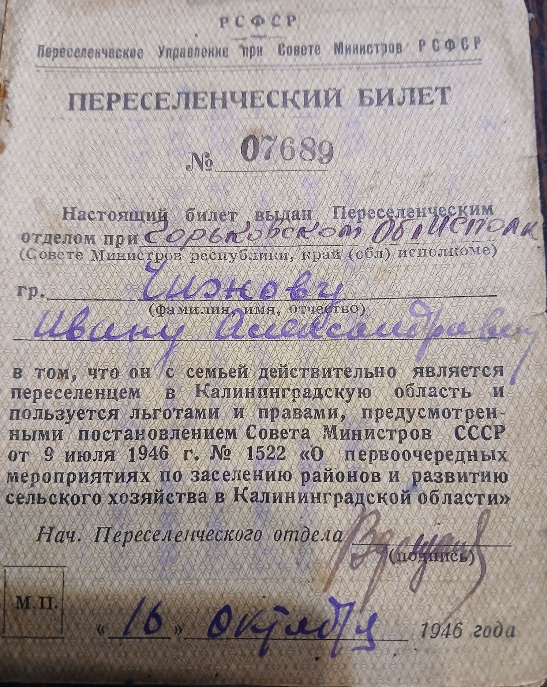 РСФСР
Переселенческое Управление при Совете Министров РСФСР
ПЕРЕСЕЛЕНЧЕСКИЙ БИЛЕТ
№ 07689
Настоящий билет выдан Переселенческим
отделом при Горьковском Облисполк
(Совете Министров республики, край (обл) исполкоме)
гр. Чижову
(фамилия, имя, отчество)
Ивану Александрович
в том, что он с семьей действительно является
переселенцем в Калининградскую область и
пользуется льготами и правами, предусмотрен-
ными постановлением Совета Министров СССР
от 9 июля 1946 г. № 1522 «О первоочередных
мероприятиях по заселению районов и развитию
сельского хозяйства в Калининградской области»
Нач. Переселенческого отдела
(подпись)
М.П.
«16» октября 1946 года